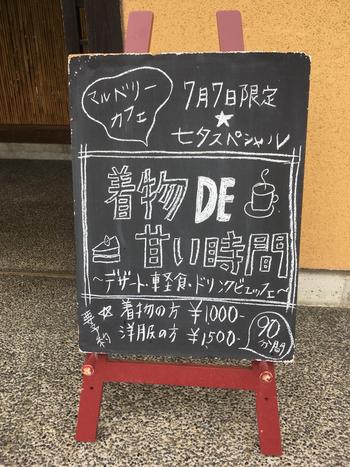 マルベリー
カフェ
7月7日限定
★
七夕スペシャル
着物DE
甘い時間
〜デザート・軽食・ドリンクビュッフェ〜
要予約
☆着物の方 ¥1000-
洋服の方 ¥1,500-
90
分間